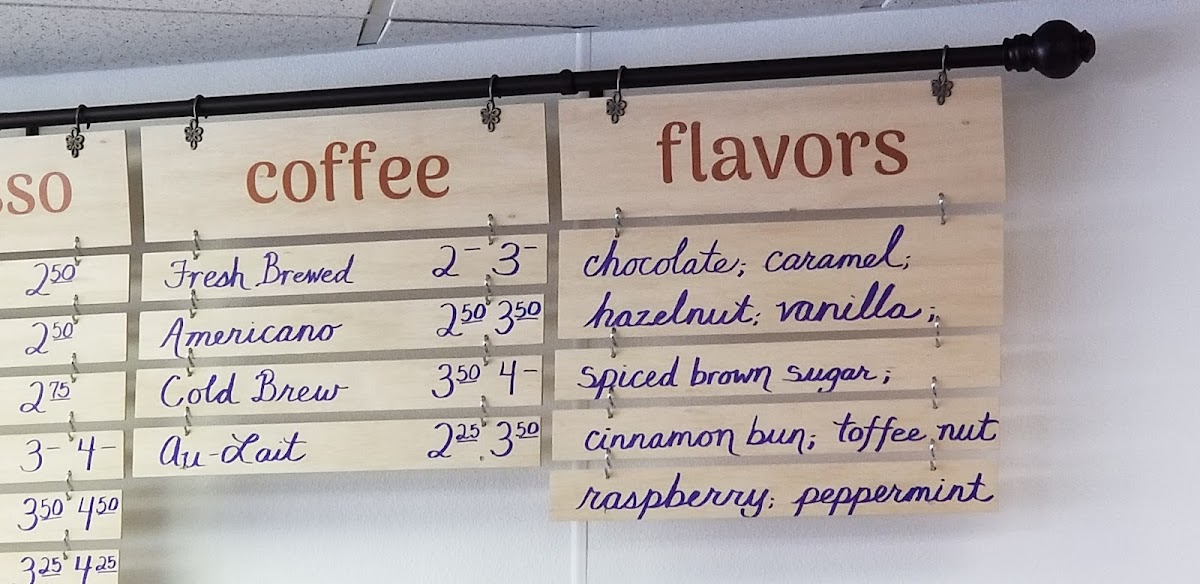 sso
2 50
2 50
2 75
3- 4-
3 50 4 50
3 25 4 25
coffee
Fresh Brewed 2- 3-
Americano 2 50 3 50
Cold Brew 3 50 4-
Au-Lait 2 25 3 50
flavors
chocolate; caramel;
hazelnut; vanilla;
spiced brown sugar;
cinnamon bun; toffee nut
raspberry; peppermint